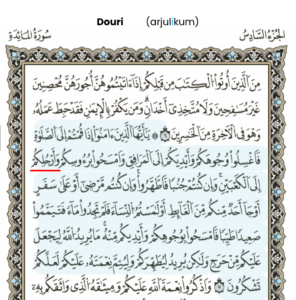 Douri (arjulikum)
سورة المائدة الجزء السادس
من الذين أوتوا الكتب من قبلكم إذا ءاتيتموهن أجورهن محصنين
غير مسفحين ولا متخذى أخدان ومن يكفر بالإيمن فقد حبط عمله
وهو فى الآخرة من الخسرين يأيها الذين ءامنوا إذا قمتم إلى الصلوة
فاغسلوا وجوهكم وأيديكم إلى المرافق وامسحوا برءوسكم وأرجلكم
إلى الكعبين وإن كنتم جنبا فاطهروا وإن كنتم مرضى أو على سفر
أو جا أحد منكم من الغائط أو لمستم النساء فلم تجدوا ماء فتيمموا
صعيدا طيبا فامسحوا بوجوهكم وأيديكم منه ما يريد الله ليجعل
عليكم من حرج ولكن يريد ليطهركم وليتم نعمته عليكم لعلكم
تشكرون واذكروا نعمة الله عليكم وميثقه الذى واثقكم به